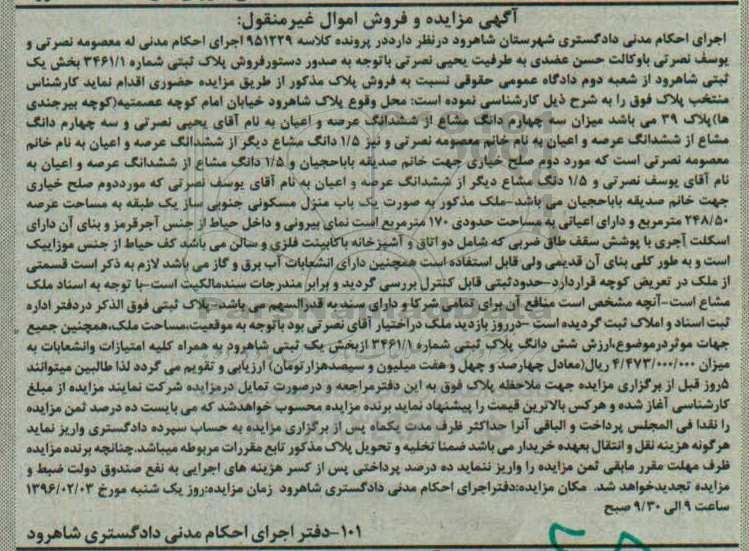 آگهی مزایده و فروش اموال غیرمنقول:
اجرای احکام مدنی دادگستری شهرستان شاهرود درنظر دارددر پرونده کلاسه ۹۵۱۲۲۹ اجرای احکام مدنی له معصومه نصرتی و
یوسف نصرتی باوکالت حسن عضدی به طرفیت یحیی نصرتی باتوجه به صدور دستورفروش پلاک ثبتی شماره ۳۴۶۱/۱ بخش یک
ثبتی شاهرود از شعبه دوم دادگاه عمومی حقوقی نسبت به فروش پلاک مذکور از طریق مزایده حضوری اقدام نماید کارشناس
منتخب پلاک فوق را به شرح ذیل کارشناسی نموده است: محل وقوع پلاک شاهرود خیابان امام کوچه عصمتیه(کوچه بیرجندی
ها)پلاک ۳۹ می باشد میزان سه چهارم دانگ مشاع از ششدانگ عرصه و اعیان به نام آقای یحیی نصرتی و سه چهارم دانگ
مشاع از ششدانگ عرصه و اعیان به نام خانم معصومه نصرتی و نیز ۱/۵ دانگ مشاع دیگر از ششدانگ عرصه و اعیان به نام خانم
معصومه نصرتی است که مورد دوم صلح خیاری جهت خانم صدیقه باباحجیان و ۱/۵ دانگ مشاع از ششدانگ عرصه و اعیان به
نام آقای یوسف نصرتی و ۱/۵ دنگ مشاع دیگر از ششدانگ عرصه و اعیان به نام آقای یوسف نصرتی که مورددوم صلح خیاری
جهت خانم صدیقه باباحجیان می باشد-ملک مذکور به صورت یک باب منزل مسکونی جنوبی ساز یک طبقه به مساحت عرصه
۲۴۸/۵۰ مترمربع و دارای اعیانی به مساحت حدودی ۱۷۰ مترمربع است نمای بیرونی و داخل حیاط از جنس آجرقرمز و بنای آن دارای
اسکلت آجری با پوشش سقف طاق ضربی که شامل دو اتاق و آشپزخانه باکابینت فلزی و سالن می باشد کف حیاط از جنس موزاییک
است و به طور کلی بنای آن قدیمی ولی قابل استفاده است همچنین دارای انشعابات آب برق و گاز می باشد لازم به ذکر است قسمتی
از ملک در تعریض کوچه قراردارد-حدودثبتی قابل کنترل بررسی گردید و برابر مندرجات سندمالکیت است-با توجه به اسناد ملک
مشاع است-آنچه مشخص است منافع آن برای تمامی شرکا و دارای سند به قدرالسهم می باشد- پلاک ثبتی فوق الذکر دردفتر اداره
ثبت اسناد و املاک ثبت گردیده است -درروز بازدید ملک دراختیار آقای نصرتی بود باتوجه به موقعیت،مساحت ملک،همچنین جمیع
جهات موثردرموضوع،ارزش شش دانگ پلاک ثبتی شماره ۳۴۶۱/۱ ازبخش یک ثبتی شاهرود به همراه کلیه امتیازات وانشعابات به
میزان ۴/۴۷۳/۰۰۰/۰۰۰ ریال(معادل چهارصد و چهل و هفت میلیون و سیصدهزار تومان) ارزیابی و تقویم می گردد لذا طالبین میتوانند
۵روز قبل از برگزاری مزایده جهت ملاحظه پلاک فوق به این دفترمراجعه و درصورت تمایل درمزایده شرکت نمایند مزایده از مبلغ
کارشناسی آغاز شده و هرکس بالاترین قیمت را پیشنهاد نماید برنده مزایده محسوب خواهدشد که می بایست ده درصد ثمن مزایده
را نقدا فی المجلس پرداخت و الباقی آنرا حداکثر ظرف مدت یکماه پس از برگزاری مزایده به حساب سپرده دادگستری واریز نماید
هرگونه هزینه نقل و انتقال بعهده خریدار می باشد ضمنا تخلیه و تحویل پلاک مذکور تابع مقررات مربوطه میباشد.چنانچه برنده مزایده
ظرف مهلت مقرر مابقی ثمن مزایده را واریز ننماید ده درصد پرداختی پس از کسر هزینه های اجرایی به نفع صندوق دولت ضبط و
مزایده تجدیدخواهد شد. مکان مزایده:دفتراجرای احکام مدنی دادگستری شاهرود زمان مزایده:روز یک شنبه مورخ ۱۳۹۶/۰۲/۰۳
ساعت ۹ الی ۹/۳۰ صبح
۱۰۱-دفتر اجرای احکام مدنی دادگستری شاهرود
ParsNamadData